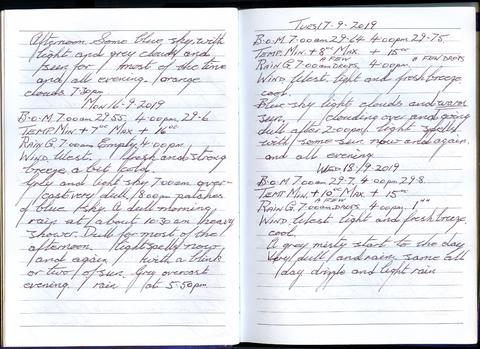 Afternoon Some blue sky, with
light and grey clouds and
sun for most of the time
and all evening. orange
clouds 7·30pm
Mon 16-9-2019
B.O.M. 7.00am 29.55. 4.00pm. 29-6
TEMP Min + 7°° Max + 16°°
RAIN G. 7.00am Empty, 4.00pm
Wind, West. fresh and strong
breeze a bit cold.
Grey and light sky 7.00am over-
cast very dull, 8.00am patches
of blue sky. A dull morning,
rain at about 10.30am heavy
shower. Dull for most of the
afternoon light spells now
and again with a blink
or two of sun. Grey overcast
evening rain at 5-50pm
Tues 17-9-2019
B.O.M. 7.00am 29-64 4.00pm. 29-75.
TEMP. Min. + 8°° Max + 15°°
RAIN G. 7.00am A FEW DROPS, 4.00pm. A FEW DROPS
Wind West, light and fresh breeze
cool.
Blue sky light clouds and warm
sun, clouding over and going
dull after 2.00pm light spells
with some sun now and again,
and all evening
Wed 18-9-2019
B.O.M. 7.00am 29-7. 4.00pm 29-8.
TEMP Min + 10°° Max + 15°°
RAIN G. 7.00am A FEW DROPS 4.00pm. 1"
Wind, West light and fresh breeze,
cool.
A grey misty start to the day
Very dull and rain, same all
day dripple and light rain